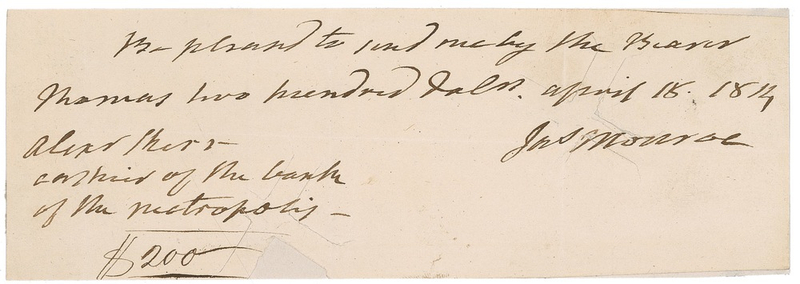 Be pleased to send me by the Bearer
Thomas two hundred dolrs. april 18. 1814
Jas Monroe
Alexr Kerr -
cashier of the bank
of the metropolis -
$200